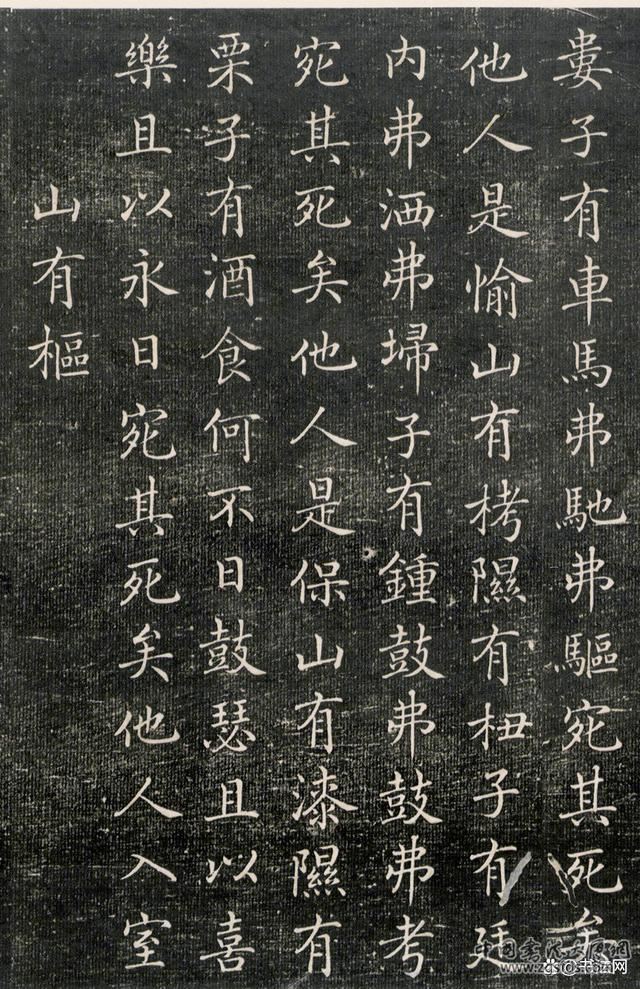 婁子有車馬弗馳弗驅宛其死矣
他人是愉山有栲隰有杻子有廷
内弗洒弗埽子有鍾鼓弗鼓弗考
宛其死矣他人是保山有漆隰有
栗子有酒食何不日鼓瑟且以喜
樂且以永日宛其死矣他人入室
山有樞